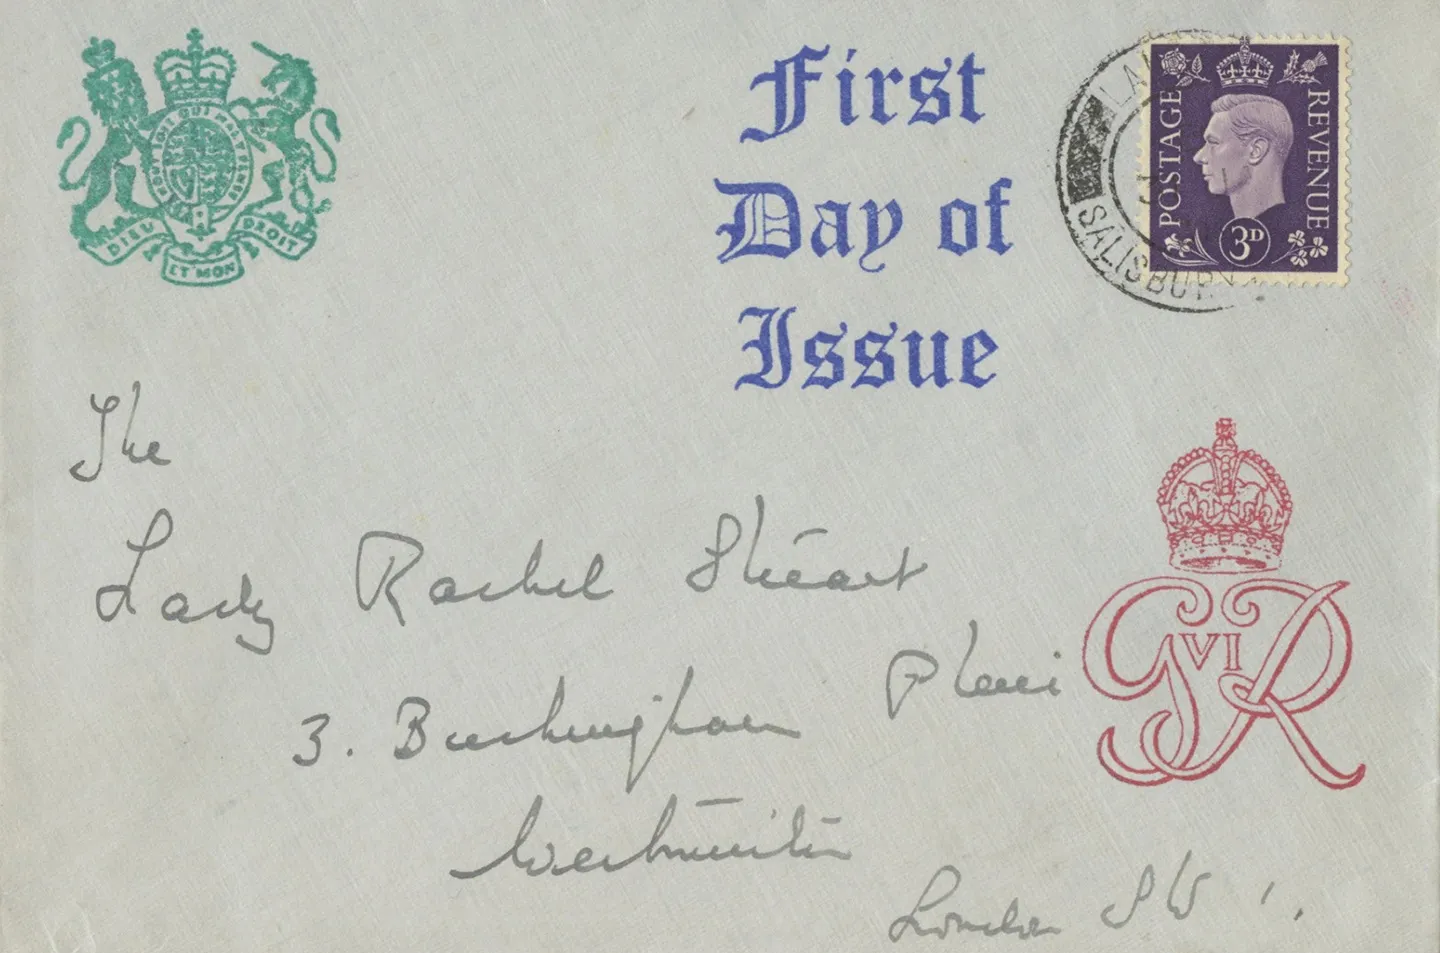 HONI SOIT QUI MAL Y PENSE
DIEU ET MON DROIT
First
Day of
Issue
POSTAGE
REVENUE
3D
SALISBURY
GVIR
The
Lady Rachel Stuart
3. Buckingham Place
Westminster
London SW1.